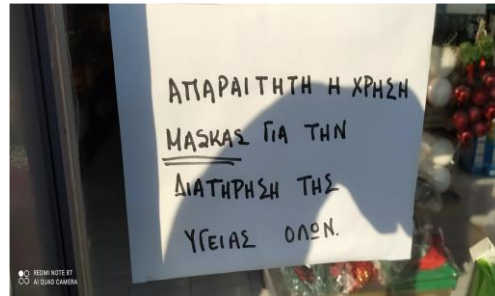 ΑΠΑΡΑΙΤΗΤΗ Η ΧΡΗΣΗ
ΜΑΣΚΑΣ ΓΙΑ ΤΗΝ
ΔΙΑΤΗΡΗΣΗ ΤΗΣ
ΥΓΕΙΑΣ ΟΛΩΝ.
REDMI NOTE 8T
AI QUAD CAMERA